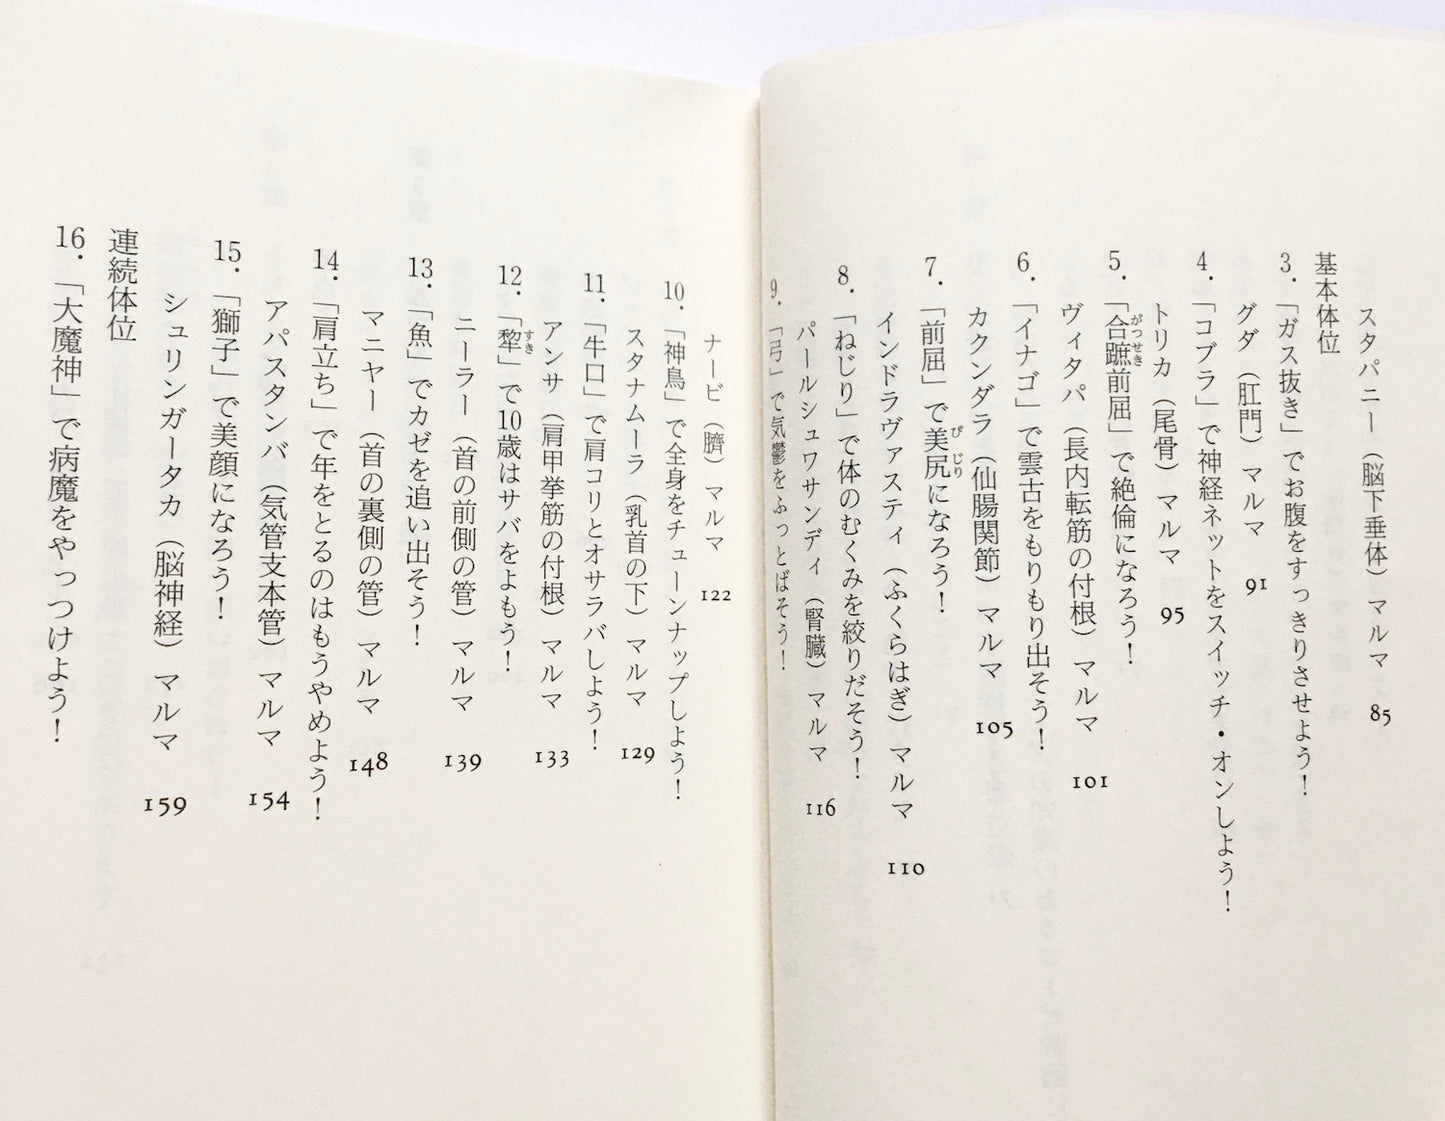 スタパニー（脳下垂体）マルマ 85
基本体位
3.「ガス抜き」でお腹をすっきりさせよう！
グダ（肛門）マルマ 91
4.「コブラ」で神経ネットをスイッチ・オンしよう！
トリカ（尾骨）マルマ 95
5.「合蹠前屈」で絶倫になろう！
がっせき
ヴィタパ（長内転筋の付根）マルマ 101
6.「イナゴ」で雲古をもりもり出そう！
カクンダラ（仙腸関節）マルマ 105
7.「前屈」で美尻になろう！
びじり
インドラヴァスティ（ふくらはぎ）マルマ 110
8.「ねじり」で体のむくみを絞りだそう！
パールシュワサンディ（腎臓）マルマ 116
9.「弓」で気鬱をふっとばそう！
ナービ（臍）マルマ 122
10.「神鳥」で全身をチューンナップしよう！
スタナムーラ（乳首の下）マルマ 129
11.「牛口」で肩コリとオサラバしよう！
アンサ（肩甲挙筋の付根）マルマ 133
12.「犂」で10歳はサバをよもう！
すき
ニーラー（首の前側の管）マルマ 139
13.「魚」でカゼを追い出そう！
マニヤー（首の裏側の管）マルマ 148
14.「肩立ち」で年をとるのはもうやめよう！
アパスタンバ（気管支本管）マルマ 154
15.「獅子」で美顔になろう！
シュリンガータカ（脳神経）マルマ 159
連続体位
16.「大魔神」で病魔をやっつけよう！